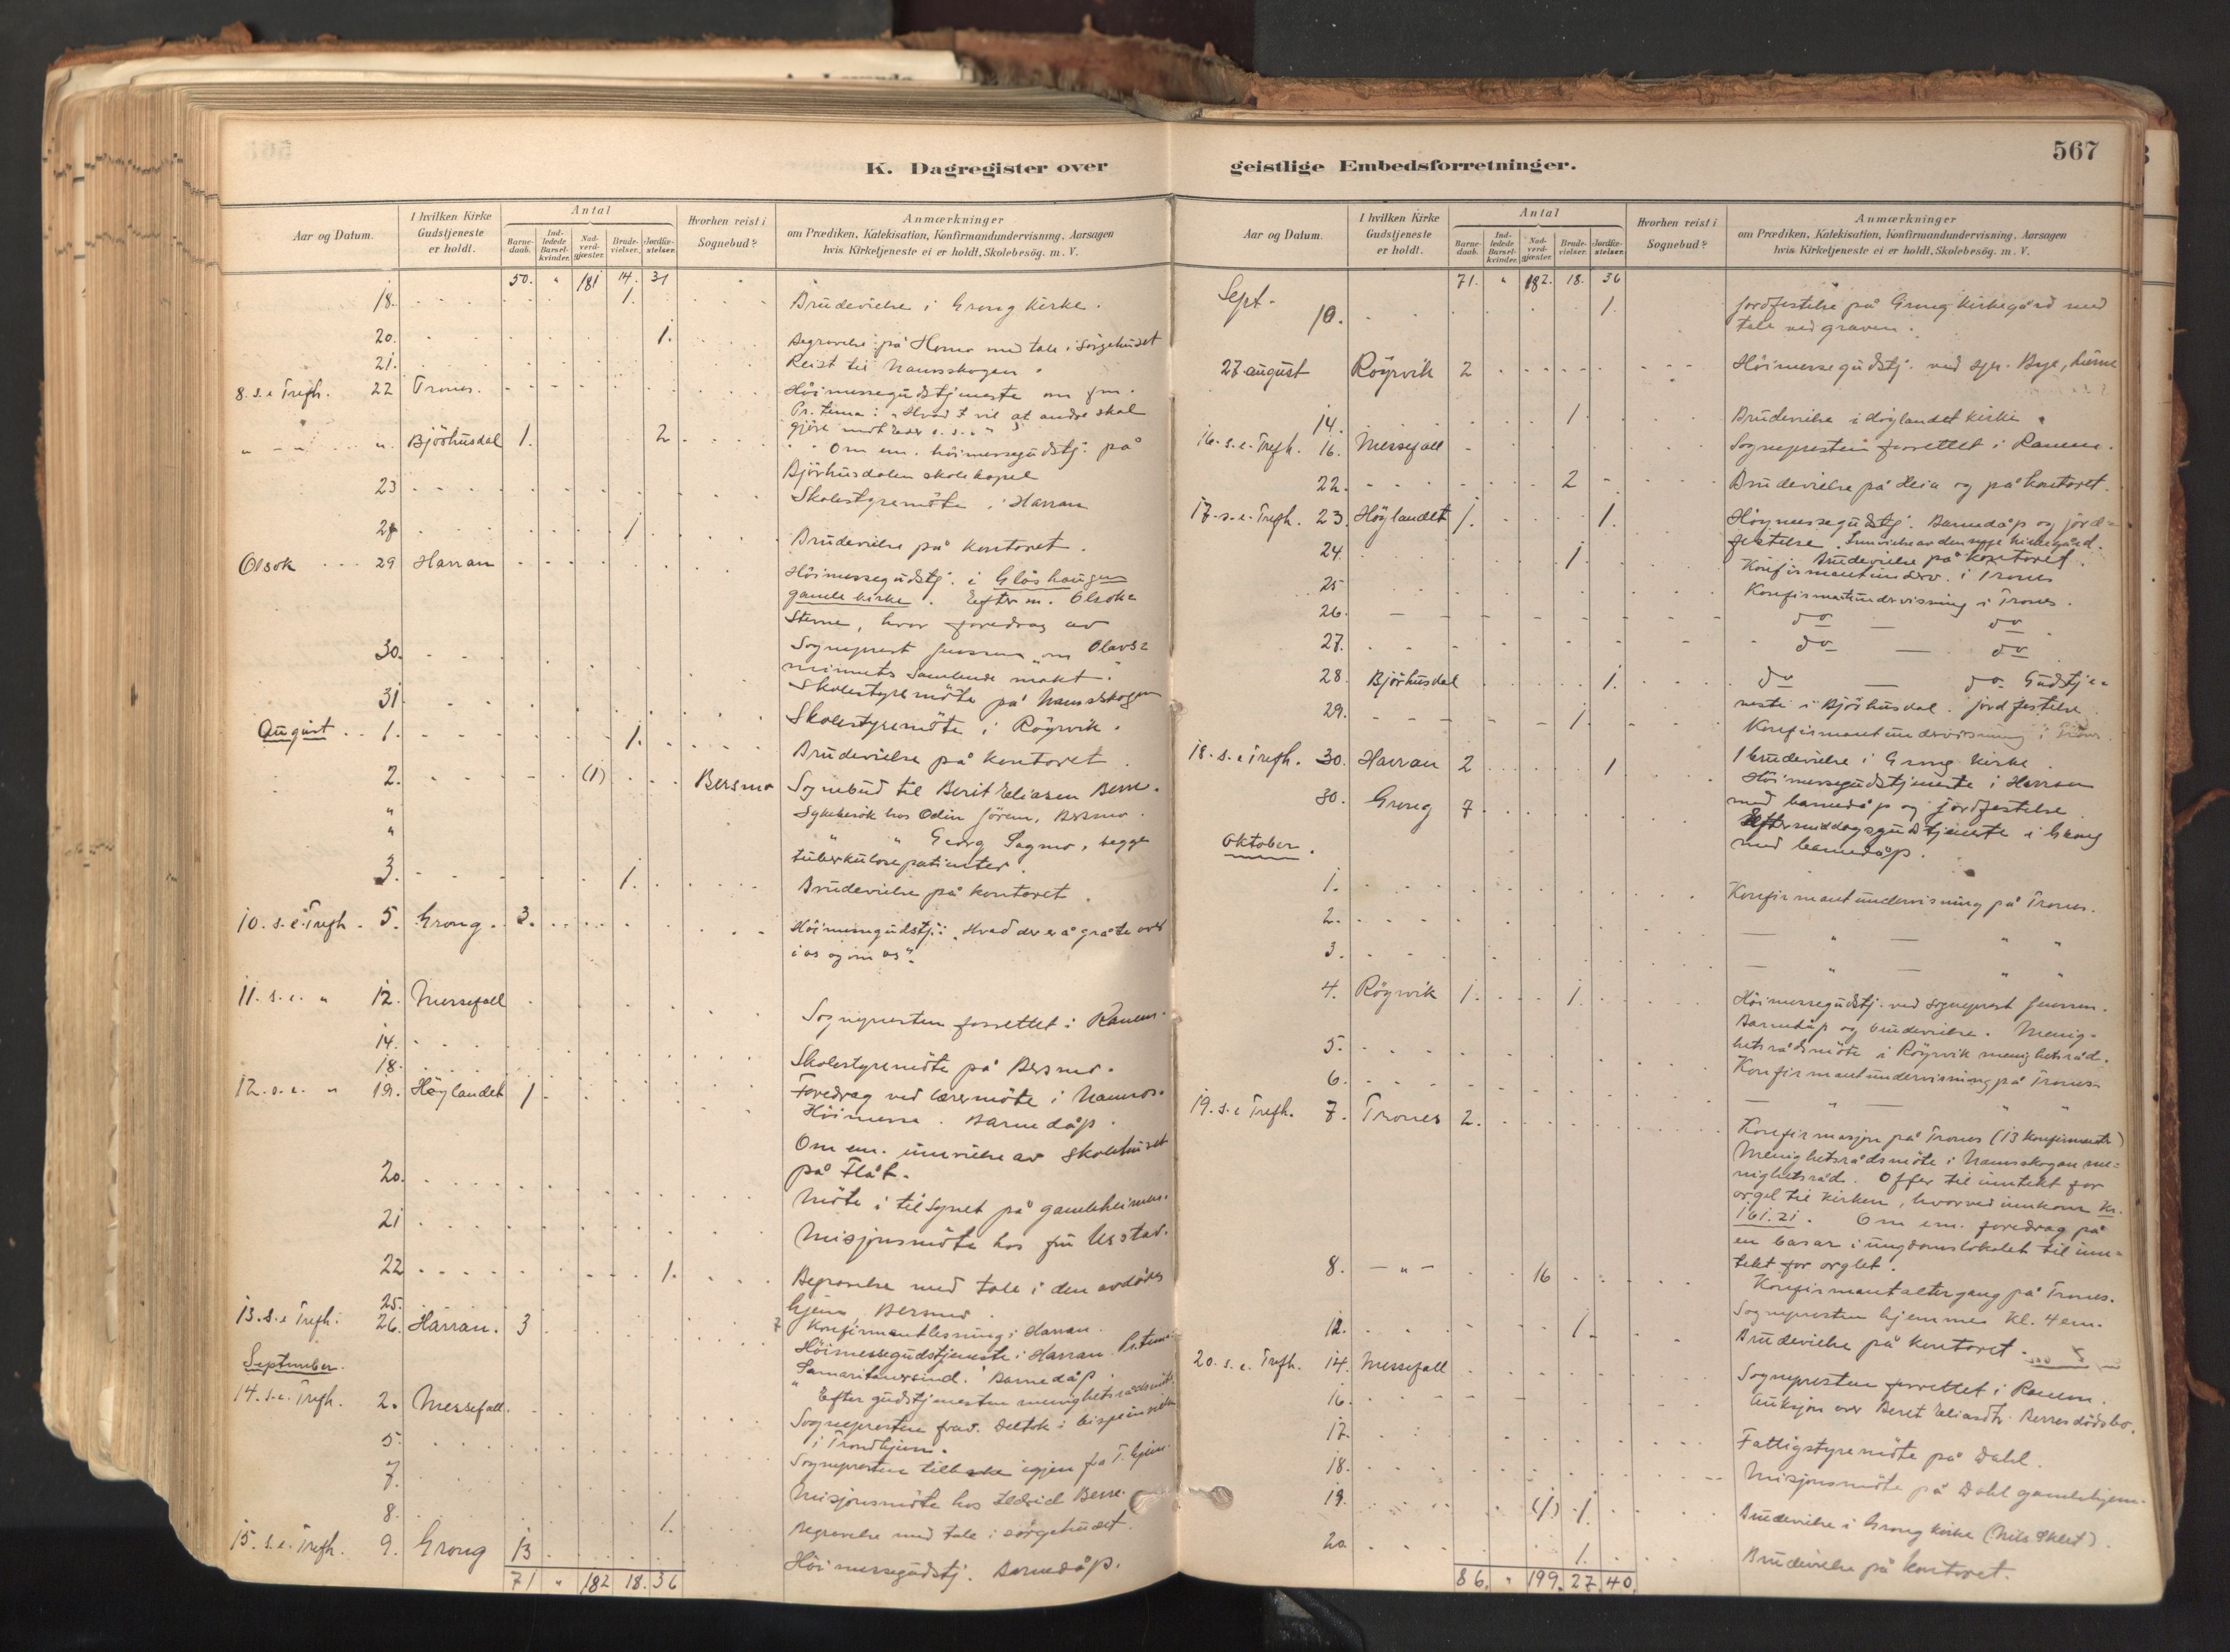 567
K. Dagregister over geistlige Embedsforretninger.
Aar og Datum. I hvilken Kirke Gudstjeneste er holdt. Antal Barnedaab. Indledede Barselkvinder. Nadverdgjæster. Brudevielser. Jordfæstelser. Hvorhen reist i Sognebud? Anmærkninger om Prædiken, Katekisation, Konfirmandundervisning, Aarsagen hvis Kirketjeneste ei er holdt, Skolebesög. m. V.
50. " 181 14. 31
18. 1. Brudevielse i Grong kirke.
20. 1. Begravelse på Homo med tale i sörgehuset
21. Reist til Namsskogen.
8. s. e. Trefh. 22 Trones. Höimessegudstjeneste om fm.
Pr. tema: "Hvad I vil at andre skal
gjöre mot Eder o. s. v."
" - " - " Björhusdal 1. 2 Om em. höimessegudstj. på
Björhusdalen skolekapel
23 Skolestyremöte i Harran
28 1 Brudevielse på kontoret.
Olsok 29 Harran Höimessegudstj. i Glöshaugen
gamle kirke. Efterm. Olsok-
stevne, hvor foredrag av
30. Sogneprest Jenssen "om Olavs-
minnets samlende makt".
31 Skolestyremöte på Namsskogen
August 1. 1. Skolestyremöte i Röyrvik.
Brudevielse på kontoret.
2. (1) Bersmo Sognebud til Berit Eliasen Berre.
" Sykebesök hos Odin Jörem, Bersmo.
" " " Georg Sagmo, begge
tuberkulosepatienter.
3. 1. Brudevielse på kontoret.
10. s. e. Trefh. 5. Grong. 3. Höimessegudstj.: "Hvad der er å gråte over
i os og om os".
11. s. e. " 12. Messefall Sognepresten forrettet i Ranem.
14. Skolestyremöte på Bersmo.
18. Foredrag ved lærermöte i Namsos.
12. s. e. " 19. Höylandet 1 Höimesse. Barnedåp.
Om em. innvielse av skolehuset
på Flåt.
20. Möte i tilsynet på gamleheimen.
21 Misjonsmöte hos fru Urstad.
22 1. Begravelse med tale i den avdödes
hjem Bersmo.
25. Konfirmantlesning i Harran.
13. s. e. Trefh. 26. Harran. 3 Höimessegudstjeneste i Harran. Pr. tema:
Samaritansind. Barnedåp.
September. " Efter gudstjenesten menighetsrådsmöte.
14. s. e. Trefh. 2. Messefall. Sognepresten frav. Deltok i bispeinnvielsen
i Trondhjem.
5. Sognepresten tilbake igjen fra T. hjem.
7. Misjonsmöte hos Eldrid Berre.
8. 1. Begravelse med tale i sörgehuset.
15. s. e. Trefh. 9. Grong 13 Höimessegudstj. Barnedåp.
71 " 182 18. 36
Aar og Datum. I hvilken Kirke Gudstjeneste er holdt. Antal Barnedaab. Indledede Barselkvinder. Nadverdgjæster. Brudevielser. Jordfæstelser. Hvorhen reist i Sognebud? Anmærkninger om Prædiken, Katekisation, Konfirmandundervisning, Aarsagen hvis Kirketjeneste ei er holdt, Skolebesög. m. V.
71. " 182. 18. 36
Sept. 10. 1. Jordfestelse på Grong kirkegård med
tale ved graven.
27 august Röyrvik 2 Höimessegudstj. ved spr. Bye,
14. 1. Brudevielse i Höylandet kirke.
16. s. e. Trefh. 16. Messefall Sognepresten forrettet i Ranem.
22. 2 Brudevielse på Heia og på kontoret.
17. s. e. Trefh. 23. Höylandet 1. 1. Höymessegudstj. Barnedåp og jord-
festelse. Innvielse av den nye kirkegård.
24. 1. Brudevielse på kontoret.
Konfirmantunderv. i Trones
25 Konfirmantundervisning i Trones.
26. do — do
27. do — do
28. Björhusdal 1. do — do Gudstje-
neste i Björhusdal. Jordfestelse.
29. 1. Konfirmantundervisning i Trones.
1 brudevielse i Grong kirke.
18. s. e. Trefh. 30. Harran 2 1 Höimessegudstjeneste i Harran
med barnedåp og jordfestelse.
30. Grong 7. Eftermiddagsgudstjeneste i Grong
med barnedåp.
Oktober.
1. Konfirmantundervisning på Trones.
2. — " — " "
3. — " — " "
4. Röyrvik 1. 1. Höimessegudstj. ved sogneprest Jenssen.
Barnedåp og brudevielse. Menig-
hetsrådsmöte i Röyrvik menighetsråd.
5. Konfirmantundervisning på Trones
6. — " — " "
19. s. e. Trefh. 7. Trones 2. Konfirmasjon på Trones (13 konfirmanter)
Menighetsrådsmöte i Namsskogan me-
nighetsråd. Offer til inntekt for
orgel til kirken, hvorved innkom Kr.
161.21. Om em. foredrag på
en basar i ungdomslokalet til inn-
tekt for orglet.
8. — " — 16 Konfirmantaltergang på Trones.
Sognepresten hjemme kl. 4 em.
12. 1. Brudevielse på kontoret.
20. s. e. Trefh. 14. Messefall Sognepresten forrettet i Ranem.
16. Auksjon over Beret Eliasdtr. Berres dödsbo.
17. Fattigstyremöte på Dahl.
18. Misjonsmöte på Dahl gamlehjem.
19. (1) 1. Brudevielse i Grong kirke (Nils Sklet).
20 1. Brudevielse på kontoret.
86. " 199. 27. 40.